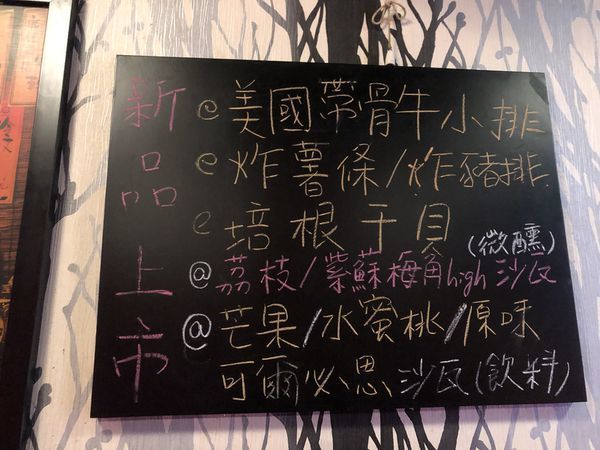 新品上市
@美國帶骨牛小排
@炸薯條/炸豬排
@培根干貝
(微醺)
@荔枝/紫蘇梅角high沙瓦
@芒果/水蜜桃/原味
可爾必思沙瓦(飲料)